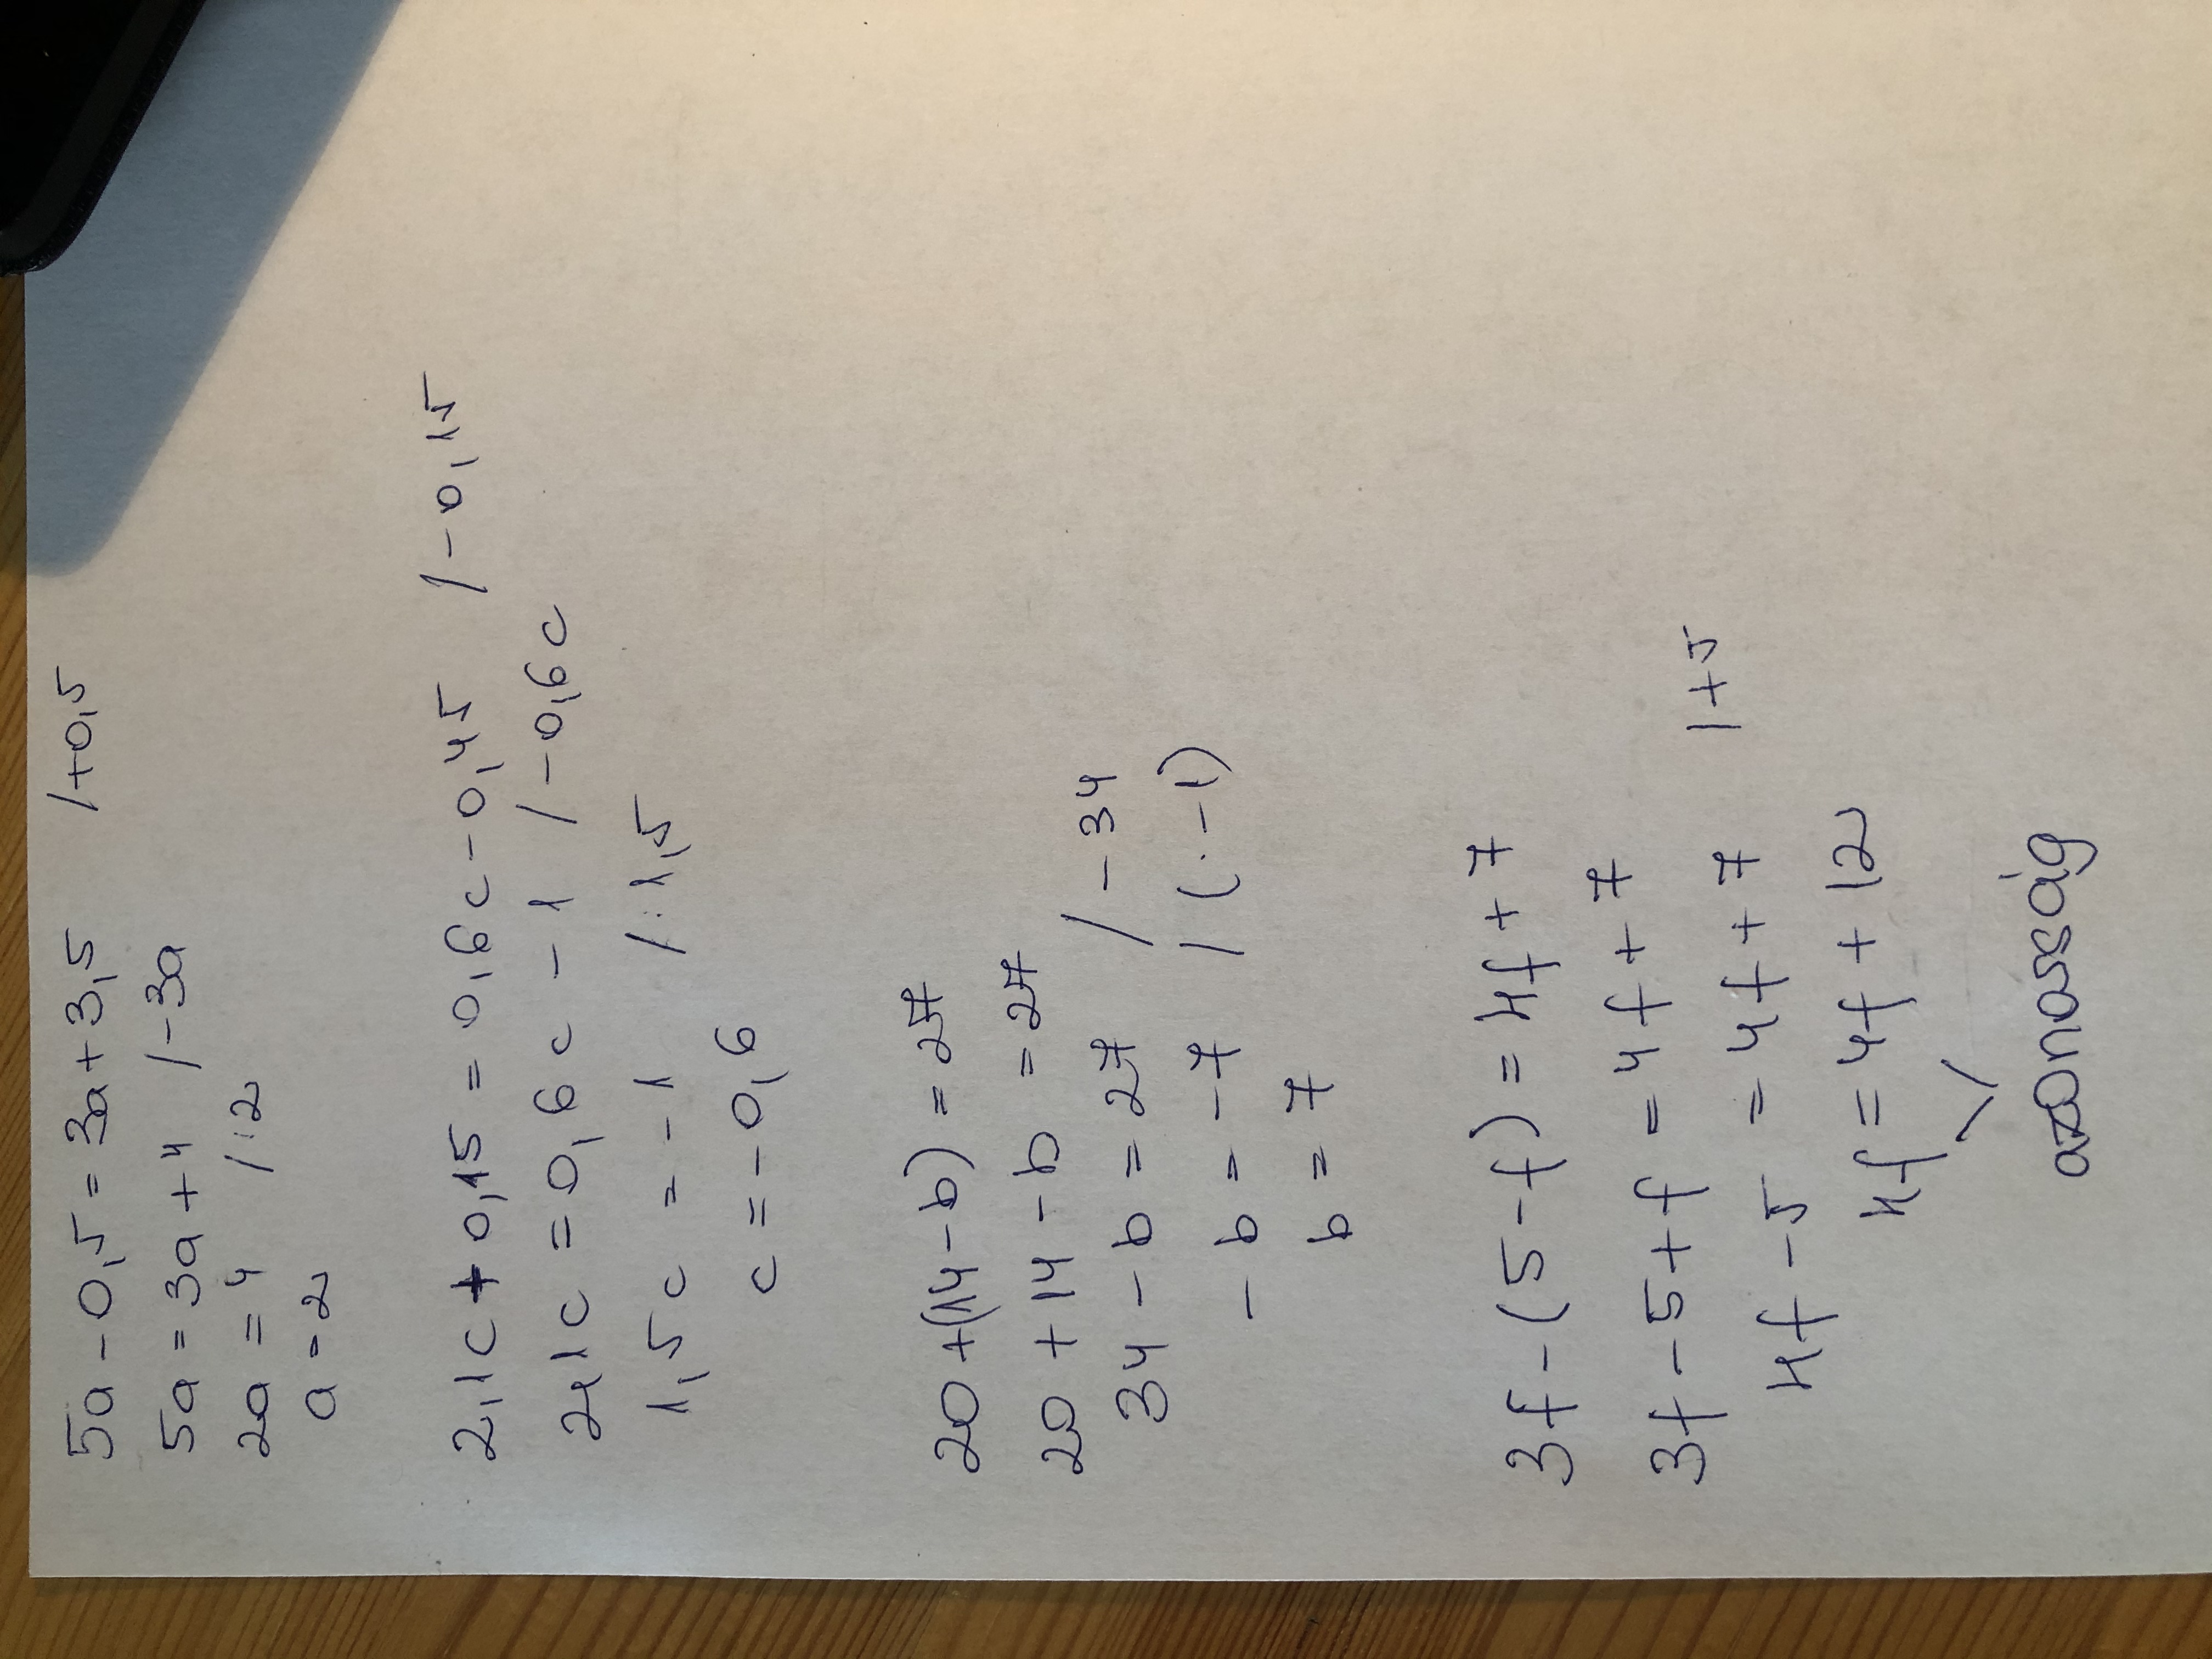 5a - 0,5 = 3a + 3,5 /+0,5
5a = 3a + 4 /-3a
2a = 4 /:2
a = 2
2,1c + 0,15 = 0,6c - 0,45 /-0,15
2,1c = 0,6c - 1 /-0,6c
1,5c = -1 /:1,5
c = -0,6
20 + (14 - b) = 27
20 + 14 - b = 27
34 - b = 27 /-34
- b = -7 /(·-1)
b = 7
3f - (5 - f) = 4f + 7
3f - 5 + f = 4f + 7
4f - 5 = 4f + 7 /+5
4f = 4f + 12
azonosság